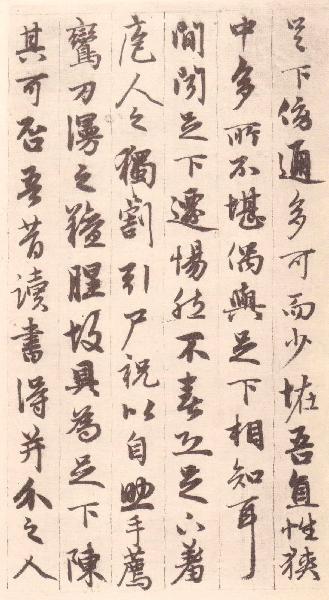 足下傍通多可而少怪吾直性狹
中多所不堪偶與足下相知耳
間聞足下遷惕然不喜恐足下羞
庖人之獨割引尸祝以自助手薦
鸞刀漫之羶腥故具為足下陳
其可否吾昔讀書得并介之人